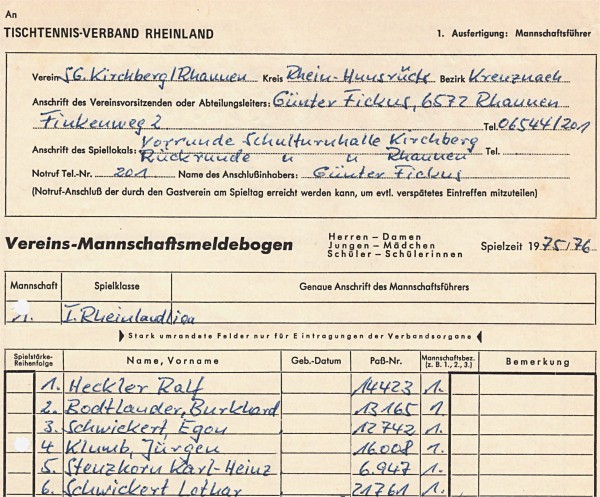 An
TISCHTENNIS-VERBAND RHEINLAND 1. Ausfertigung: Mannschaftsführer
Verein SG. Kirchberg/Rhaunen Kreis Rhein-Hunsrück Bezirk Kreuznach
Anschrift des Vereinsvorsitzenden oder Abteilungsleiters: Günter Fickus, 6572 Rhaunen
Finkenweg 2 Tel. 06544/201
Anschrift des Spiellokals: Vorrunde Schulturnhalle Kirchberg
Rückrunde " " Rhaunen Tel.
Notruf Tel.-Nr. 201 Name des Anschlußinhabers: Günter Fickus
(Notruf-Anschluß der durch den Gastverein am Spieltag erreicht werden kann, um evtl. verspätetes Eintreffen mitzuteilen)
Vereins-Mannschaftsmeldebogen
Herren – Damen
Jungen – Mädchen
Schüler – Schülerinnen
Spielzeit 1975/76
Mannschaft Spielklasse Genaue Anschrift des Mannschaftsführers
1. I. Rheinlandliga
Stark umrandete Felder nur für Eintragungen der Verbandsorgane
Spielstärke-Reihenfolge Name, Vorname Geb.-Datum Paß-Nr. Mannschaftsbez. (z. B. 1., 2., 3.) Bemerkung
1. Heckler Ralf 14423 1.
2. Rodtlander, Burkhard 13165 1.
3. Schwickert, Egon 12742 1.
4 Klumb, Jürgen 16.008 1.
5. Stenzhorn Karl-Heinz 6.947 1.
6. Schwickert Lothar 21761 1.